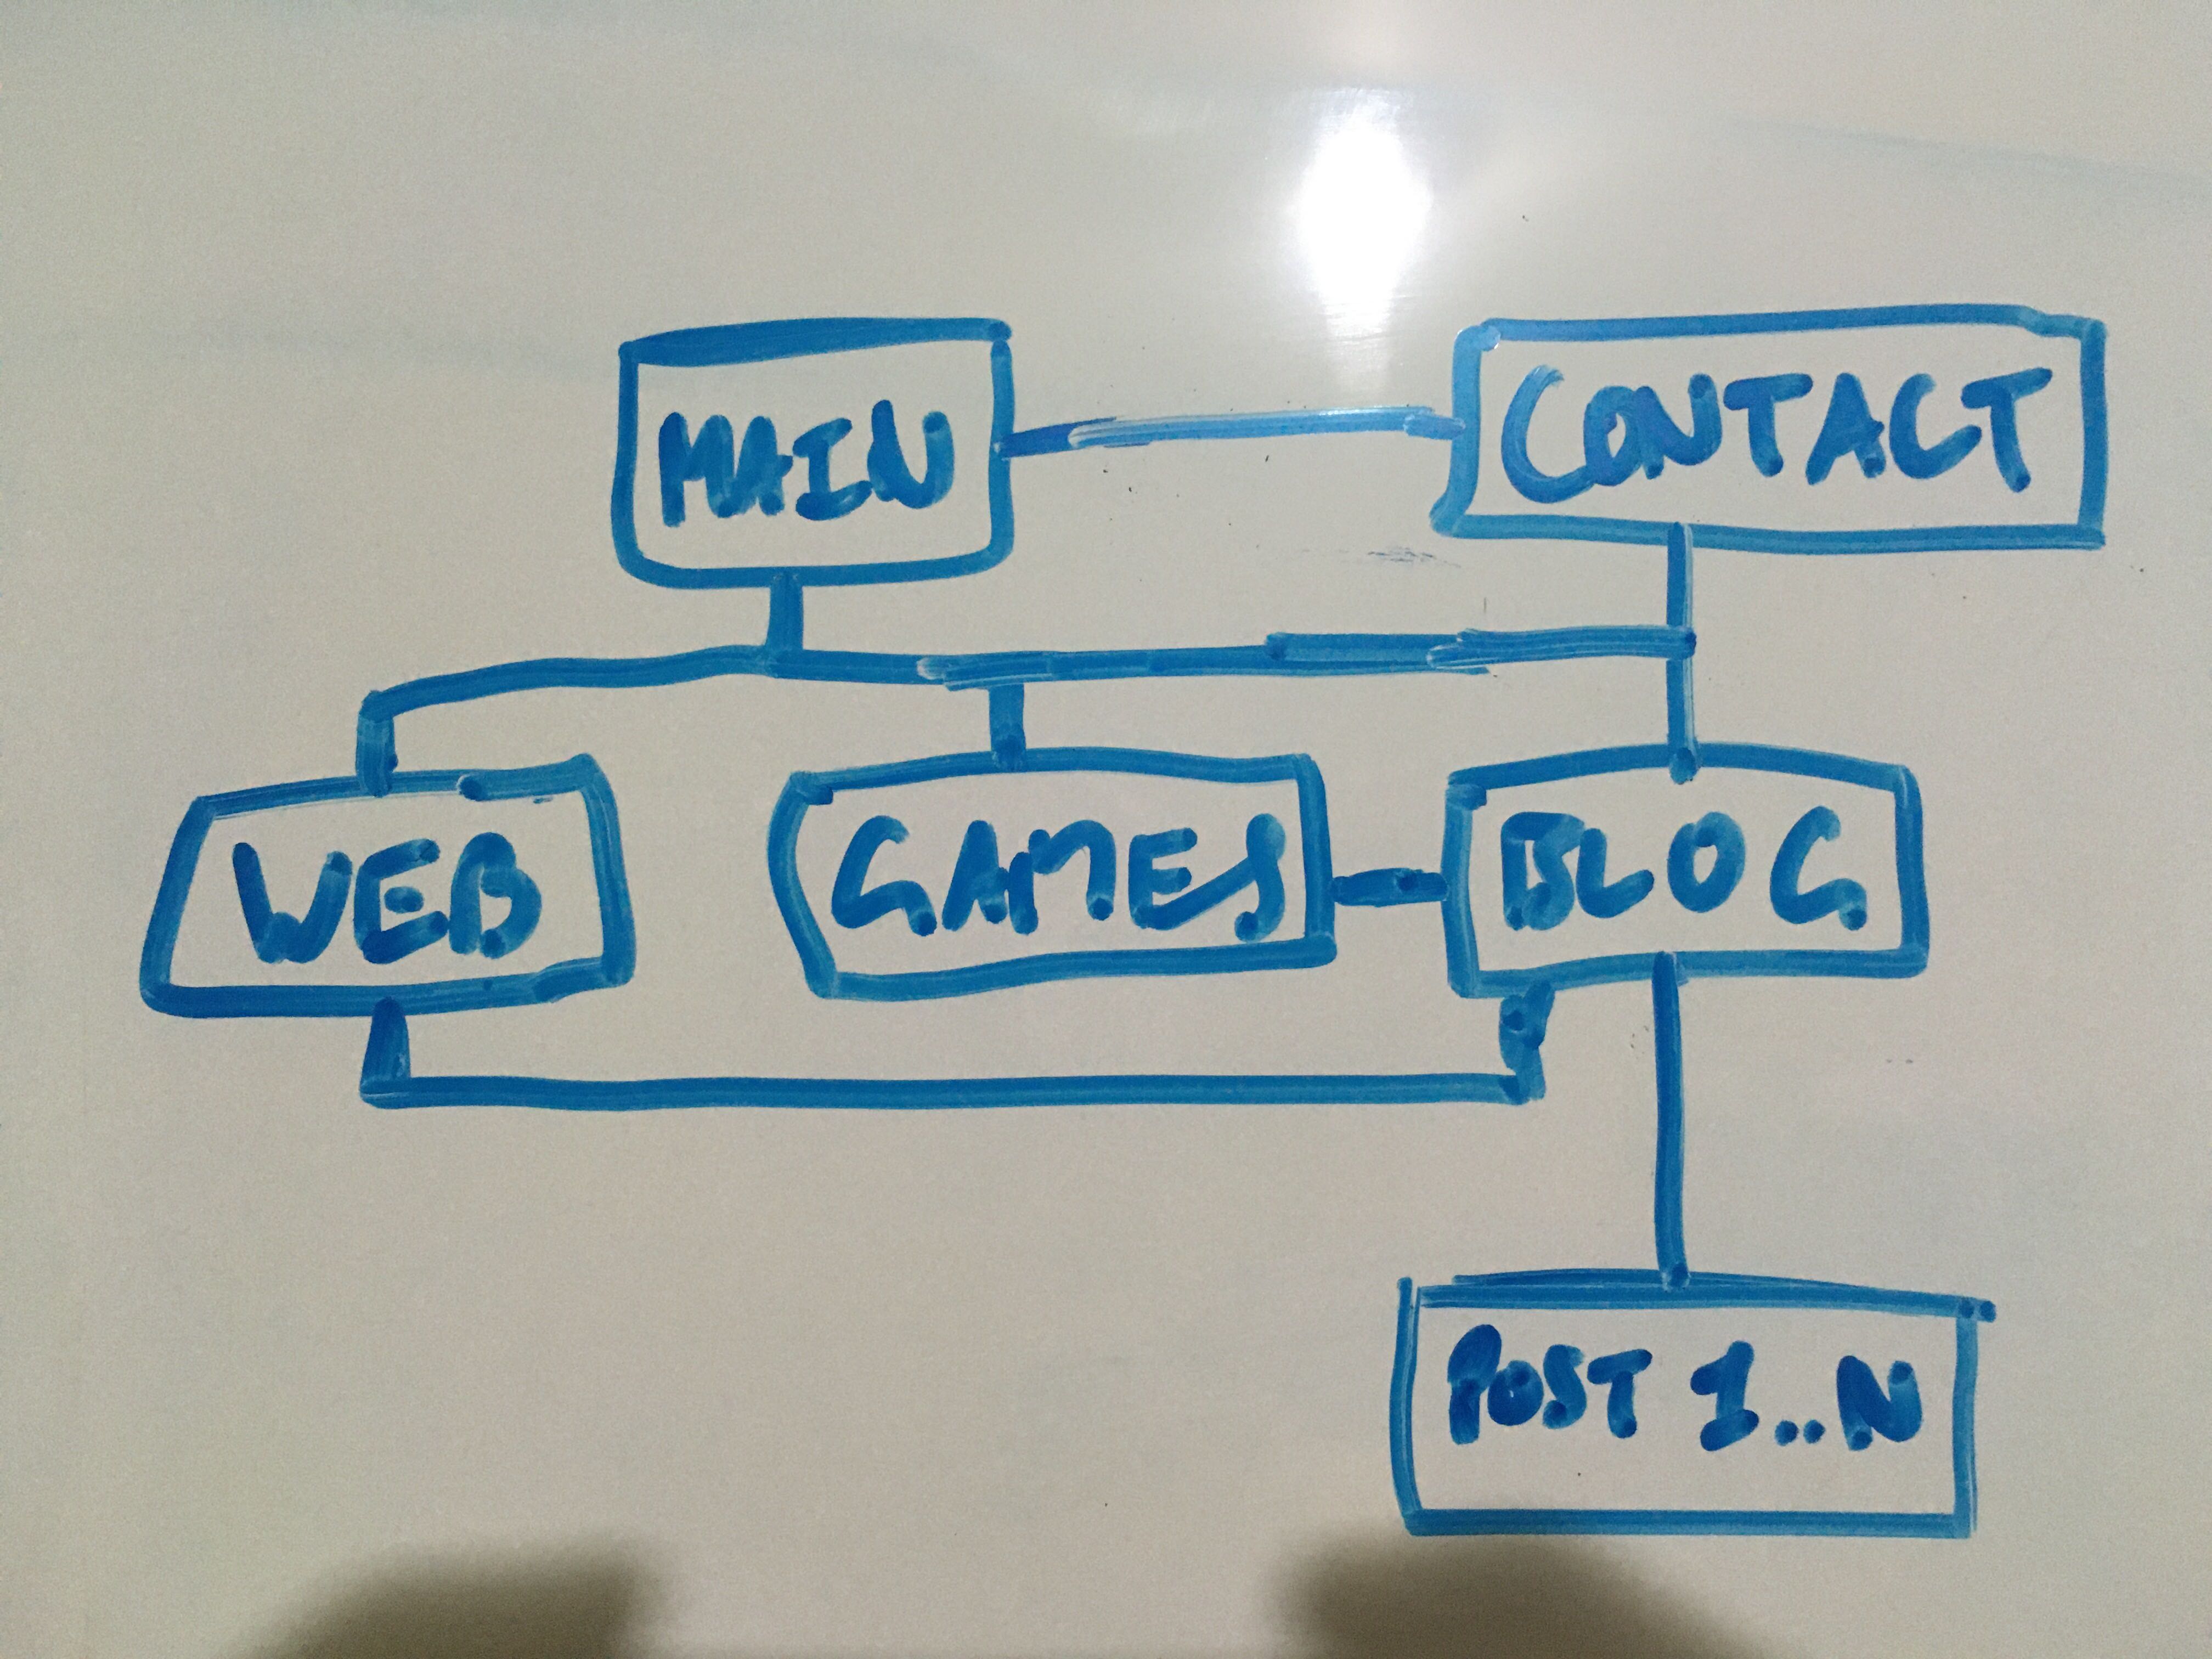 MAIN
CONTACT
WEB
GAMES
BLOG
POST 1..N